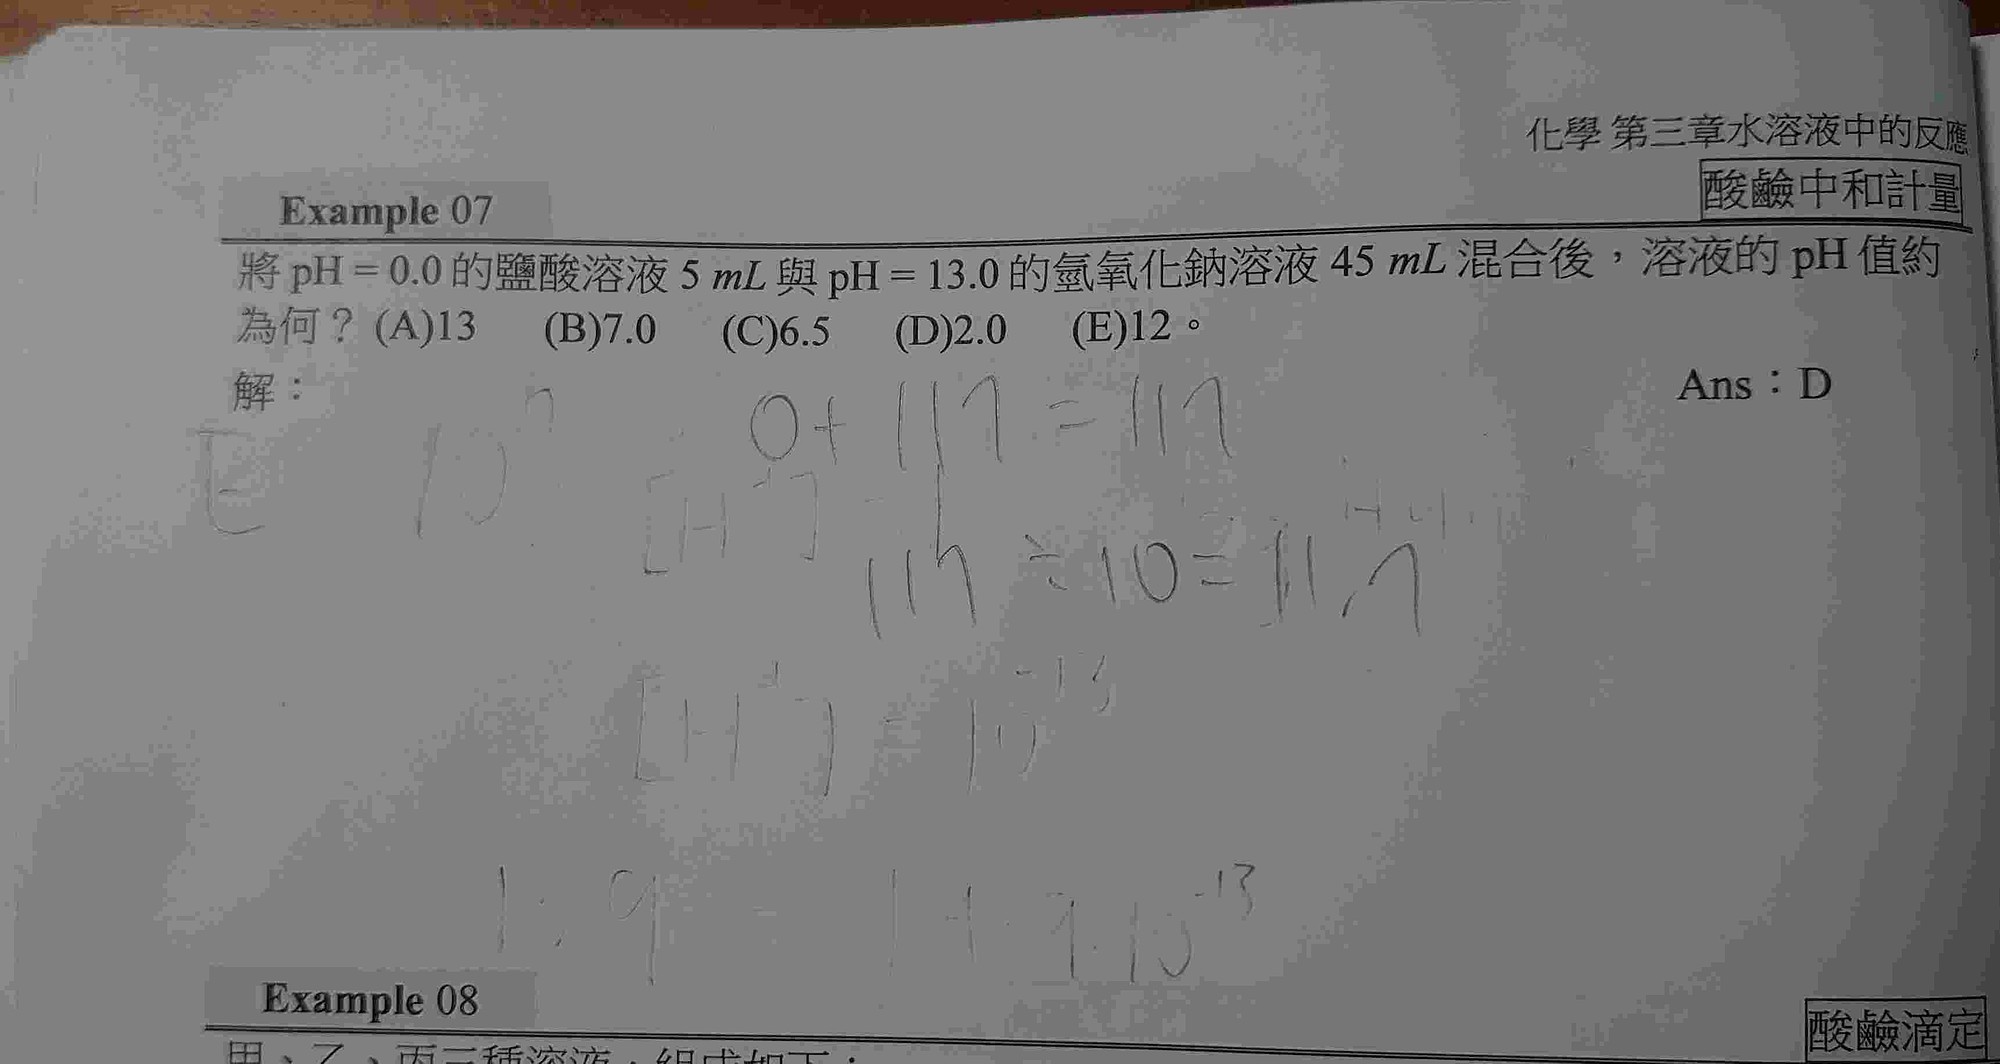 化學 第三章水溶液中的反應
酸鹼中和計量
Example 07
將 pH = 0.0 的鹽酸溶液 5 mL 與 pH = 13.0 的氫氧化鈉溶液 45 mL 混合後，溶液的 pH 值約
為何？ (A)13 (B)7.0 (C)6.5 (D)2.0 (E)12。
解：
Ans：D
0 + 117 = 117
E 10
[H⁺] =
117 ÷ 10 = 11.7
[H⁺] = 10⁻¹³
1 : 9 1 + 9 · 10⁻¹³
Example 08
酸鹼滴定
甲、乙、丙三種溶液，組成如下：